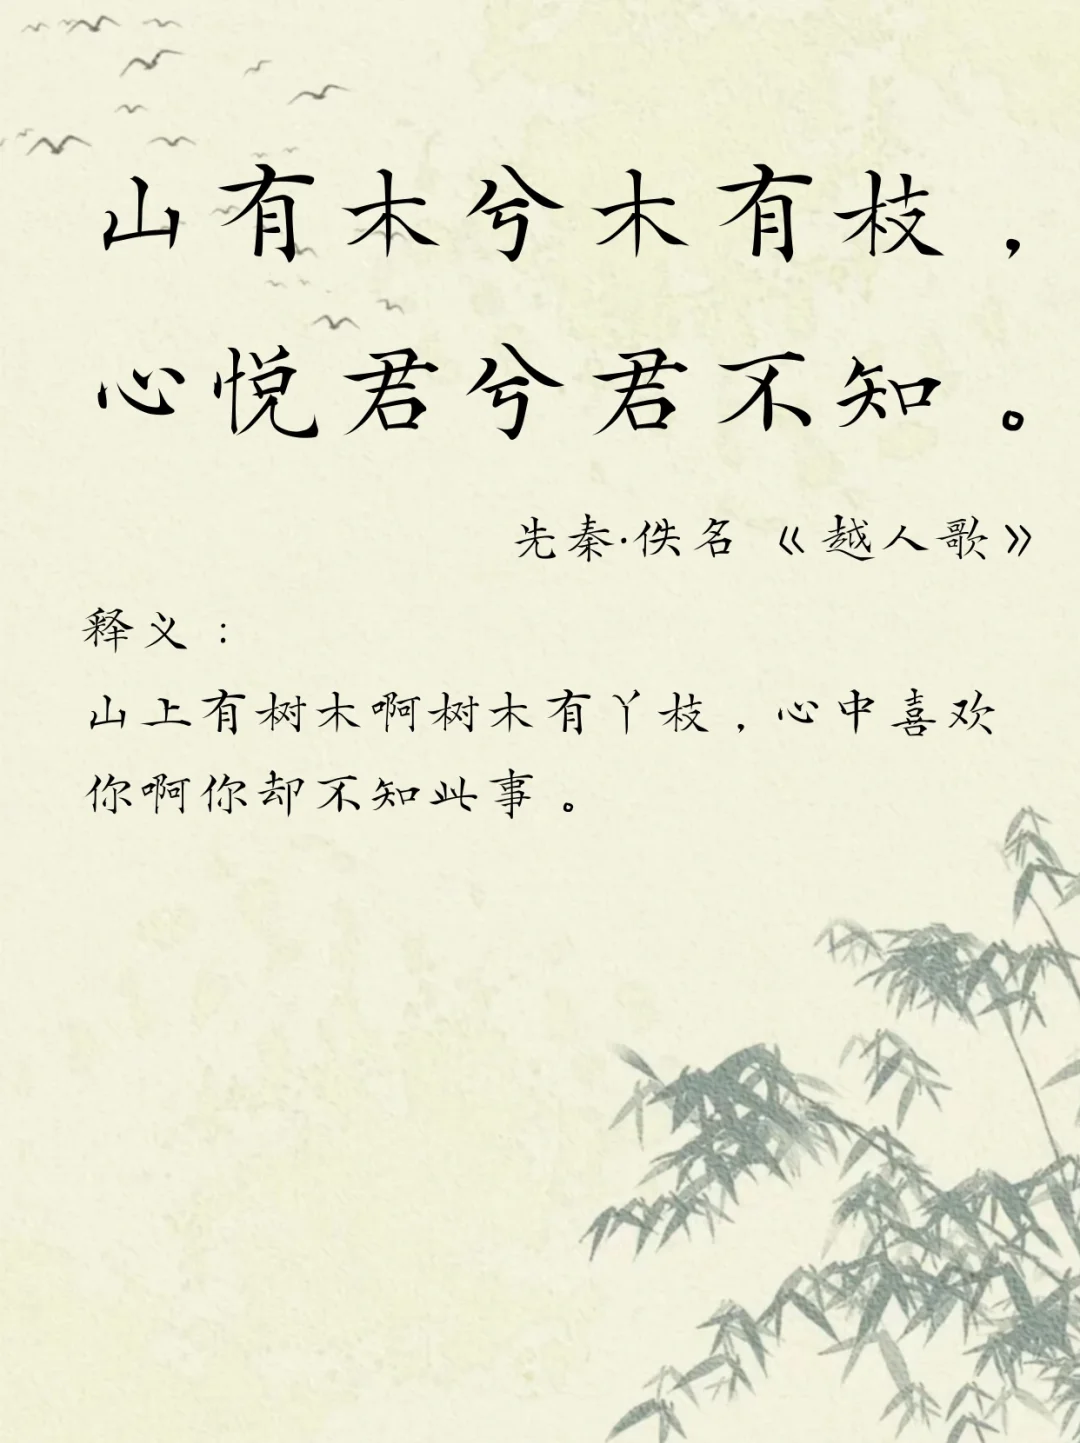 山有木兮木有枝，
心悦君兮君不知。
先秦·佚名《越人歌》
释义：
山上有树木啊树木有丫枝，心中喜欢
你啊你却不知此事。